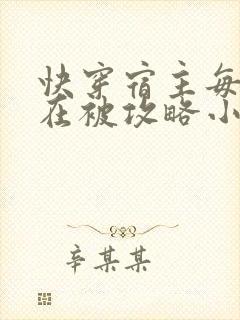 快穿宿主每
在被攻略小
辛某某